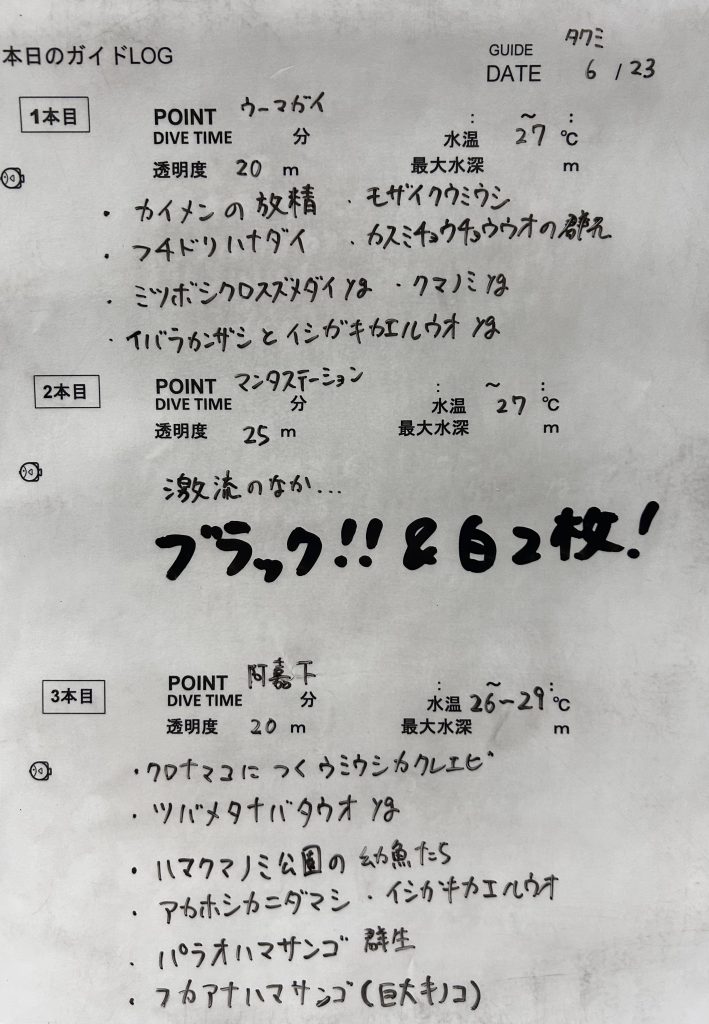 本日のガイドLOG
GUIDE タクミ
DATE 6 / 23
1本目
POINT ウーマガイ
DIVE TIME 分 : 〜 :
水温 27 ℃
透明度 20 m 最大水深 m
・カイメンの放精 ・モザイクウミウシ
・フチドリハナダイ ・カスミチョウチョウウオの群れ
・ミツボシクロスズメダイ yg ・クマノミ yg
・イバラカンザシとイシガキカエルウオ yg
2本目
POINT マンタステーション
DIVE TIME 分 : 〜 :
水温 27 ℃
透明度 25 m 最大水深 m
激流のなか...
ブラック!! & 白2枚!
3本目
POINT 阿嘉下
DIVE TIME 分 : 〜 :
水温 26〜29 ℃
透明度 20 m 最大水深 m
・クロナマコにつくウミウシカクレエビ
・ツバメタナバタウオ yg
・ハマクマノミ公園の幼魚たち
・アカホシカニダマシ ・イシガキカエルウオ
・パラオハマサンゴ 群生
・フカアナハマサンゴ(巨大キノコ)